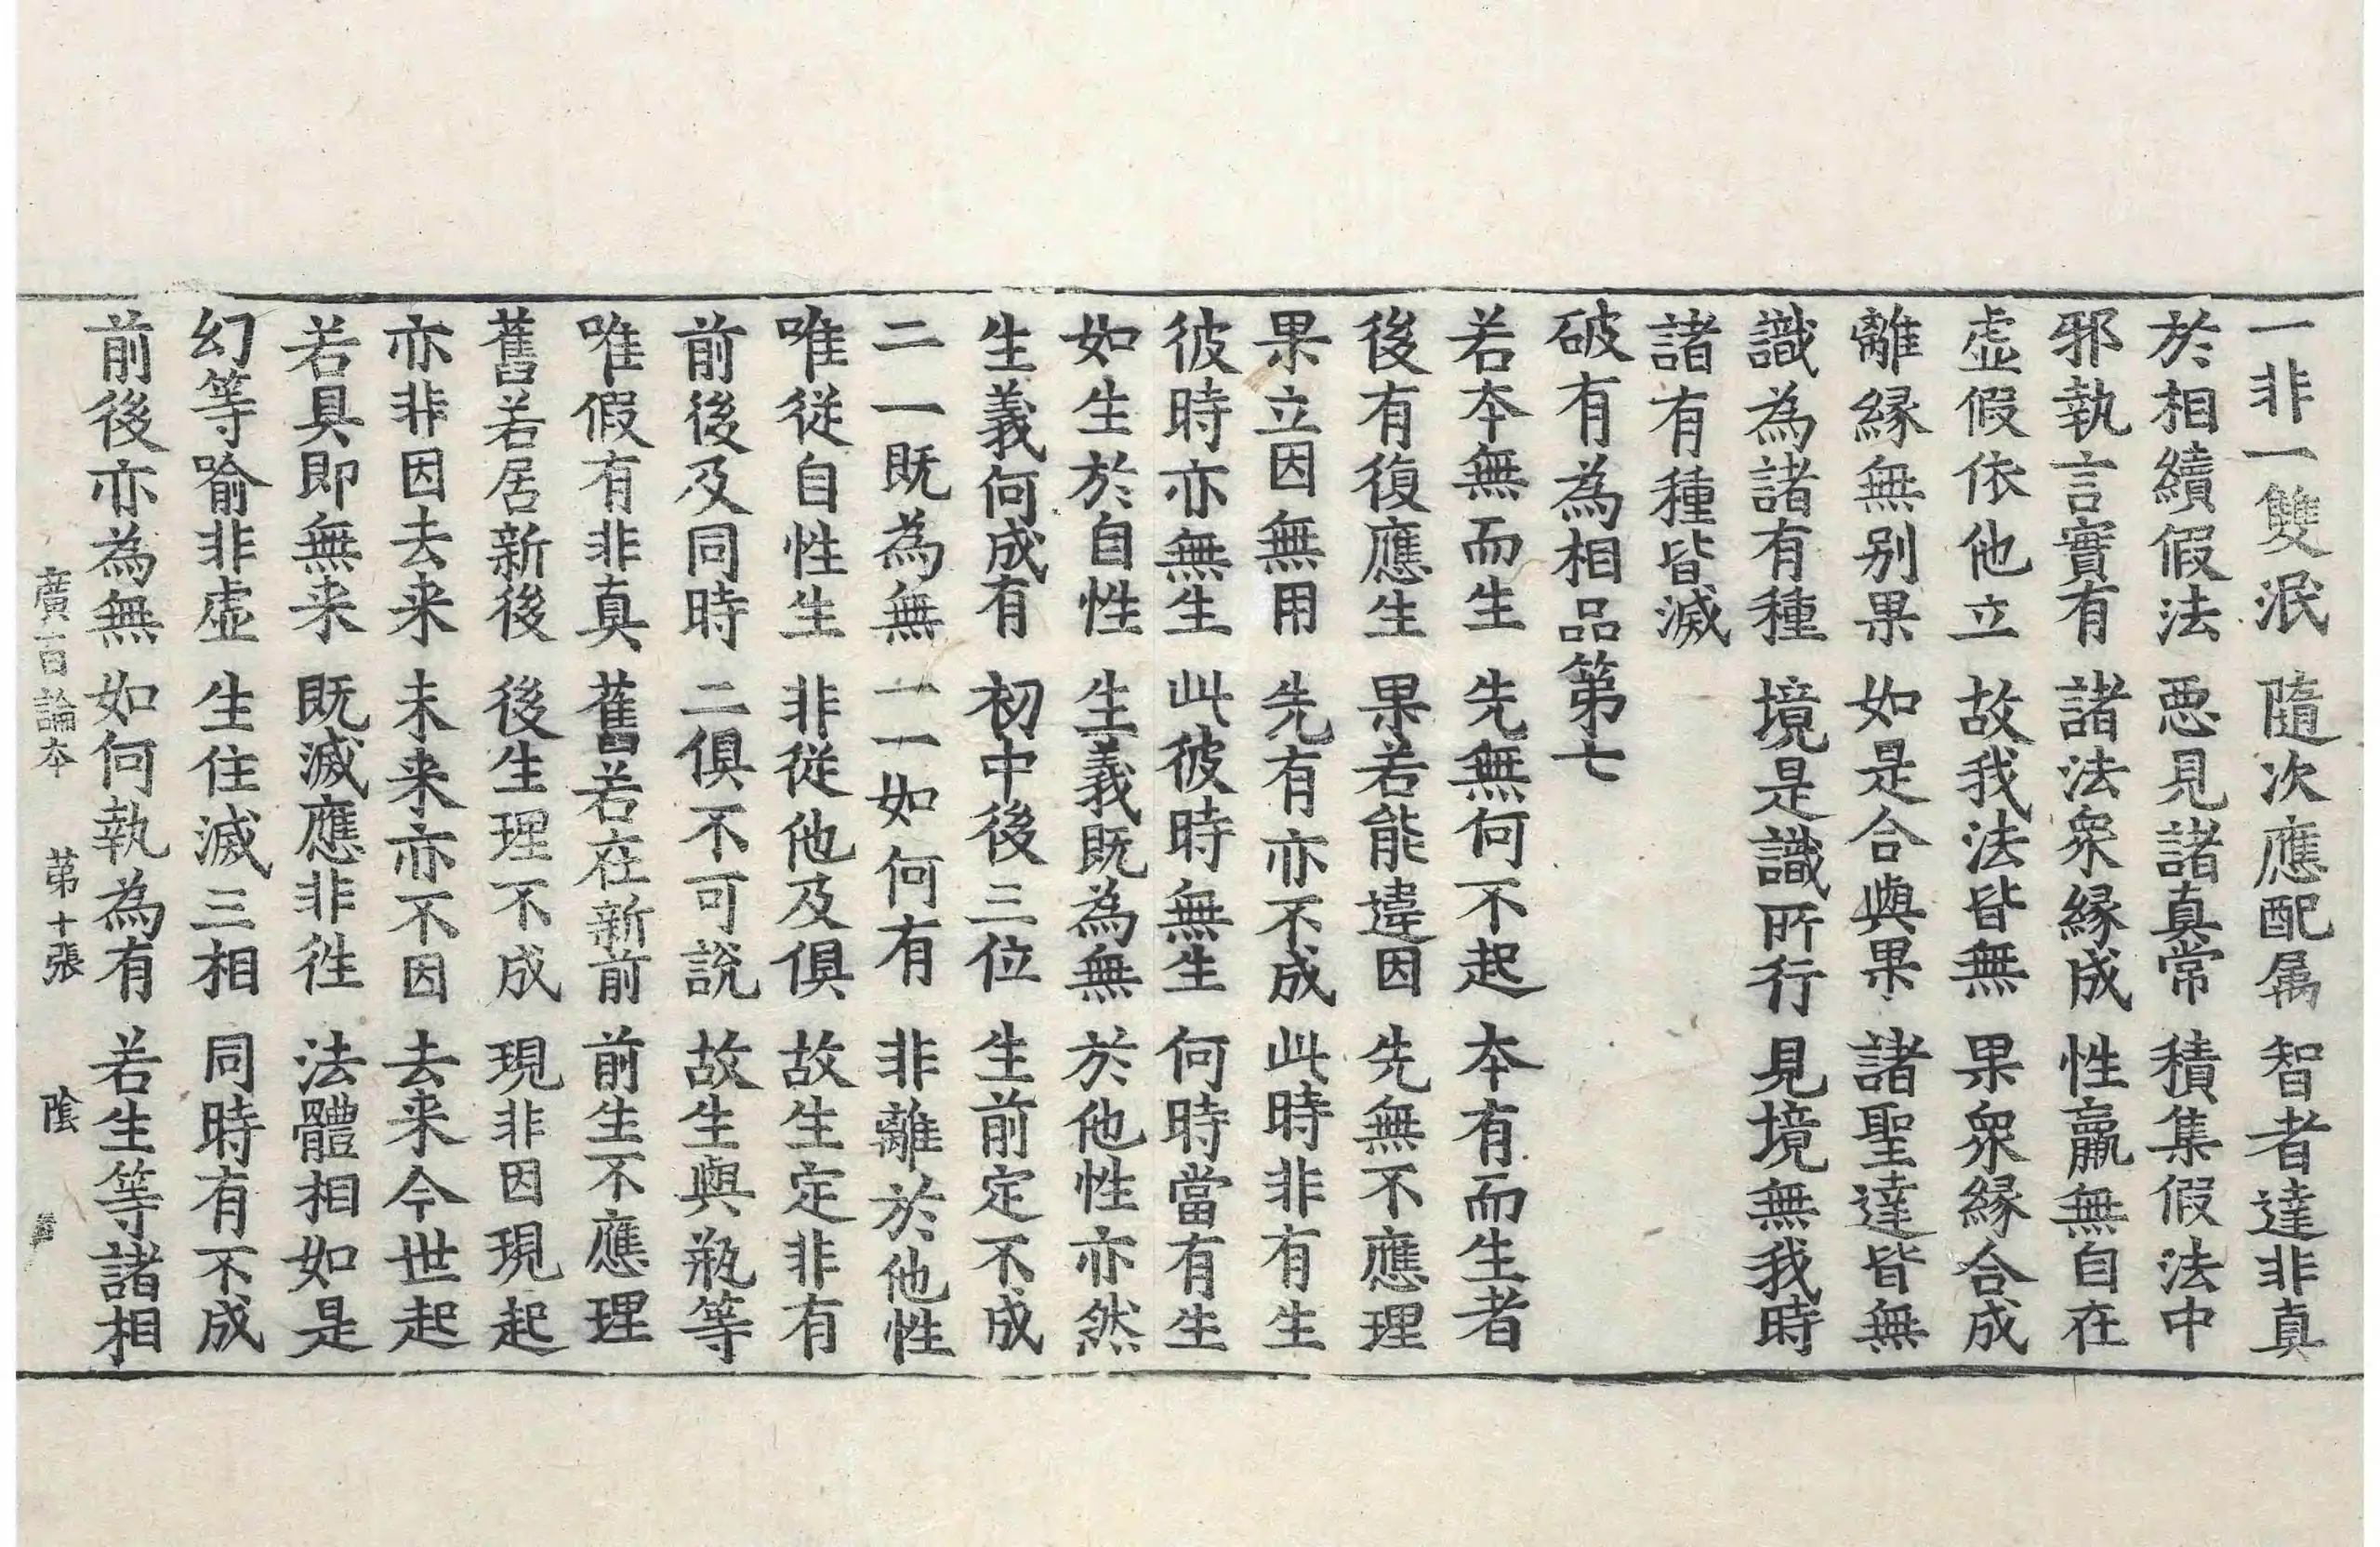 一非一雙泯　隨次應配属　智者達非真
於相續假法　惡見諸真常　積集假法中
邪執言實有　諸法衆緣成　性羸無自在
虛假依他立　故我法皆無　果衆緣合成
離緣無别果　如是合與果　諸聖達皆無
識為諸有種　境是識所行　見境無我時
諸有種皆滅
破有為相品第七
若本無而生　先無何不起　本有而生者
後有復應生　果若能違因　先無不應理
果立因無用　先有亦不成　此時非有生
彼時亦無生　此彼時無生　何時當有生
如生於自性　生義既為無　於他性亦然
生義何成有　初中後三位　生前定不成
二一既為無　一一如何有　非離於他性
唯從自性生　非從他及俱　故生定非有
前後及同時　二俱不可說　故生與瓶等
唯假有非真　舊若在新前　前生不應理
舊若居新後　後生理不成　現非因現起
亦非因去来　未来亦不因　去来今世起
若具即無来　既滅應非徃　法體相如是
幻等喻非虛　生住滅三相　同時有不成
前後亦為無　如何執為有　若生等諸相
廣百論本　第十張　陰